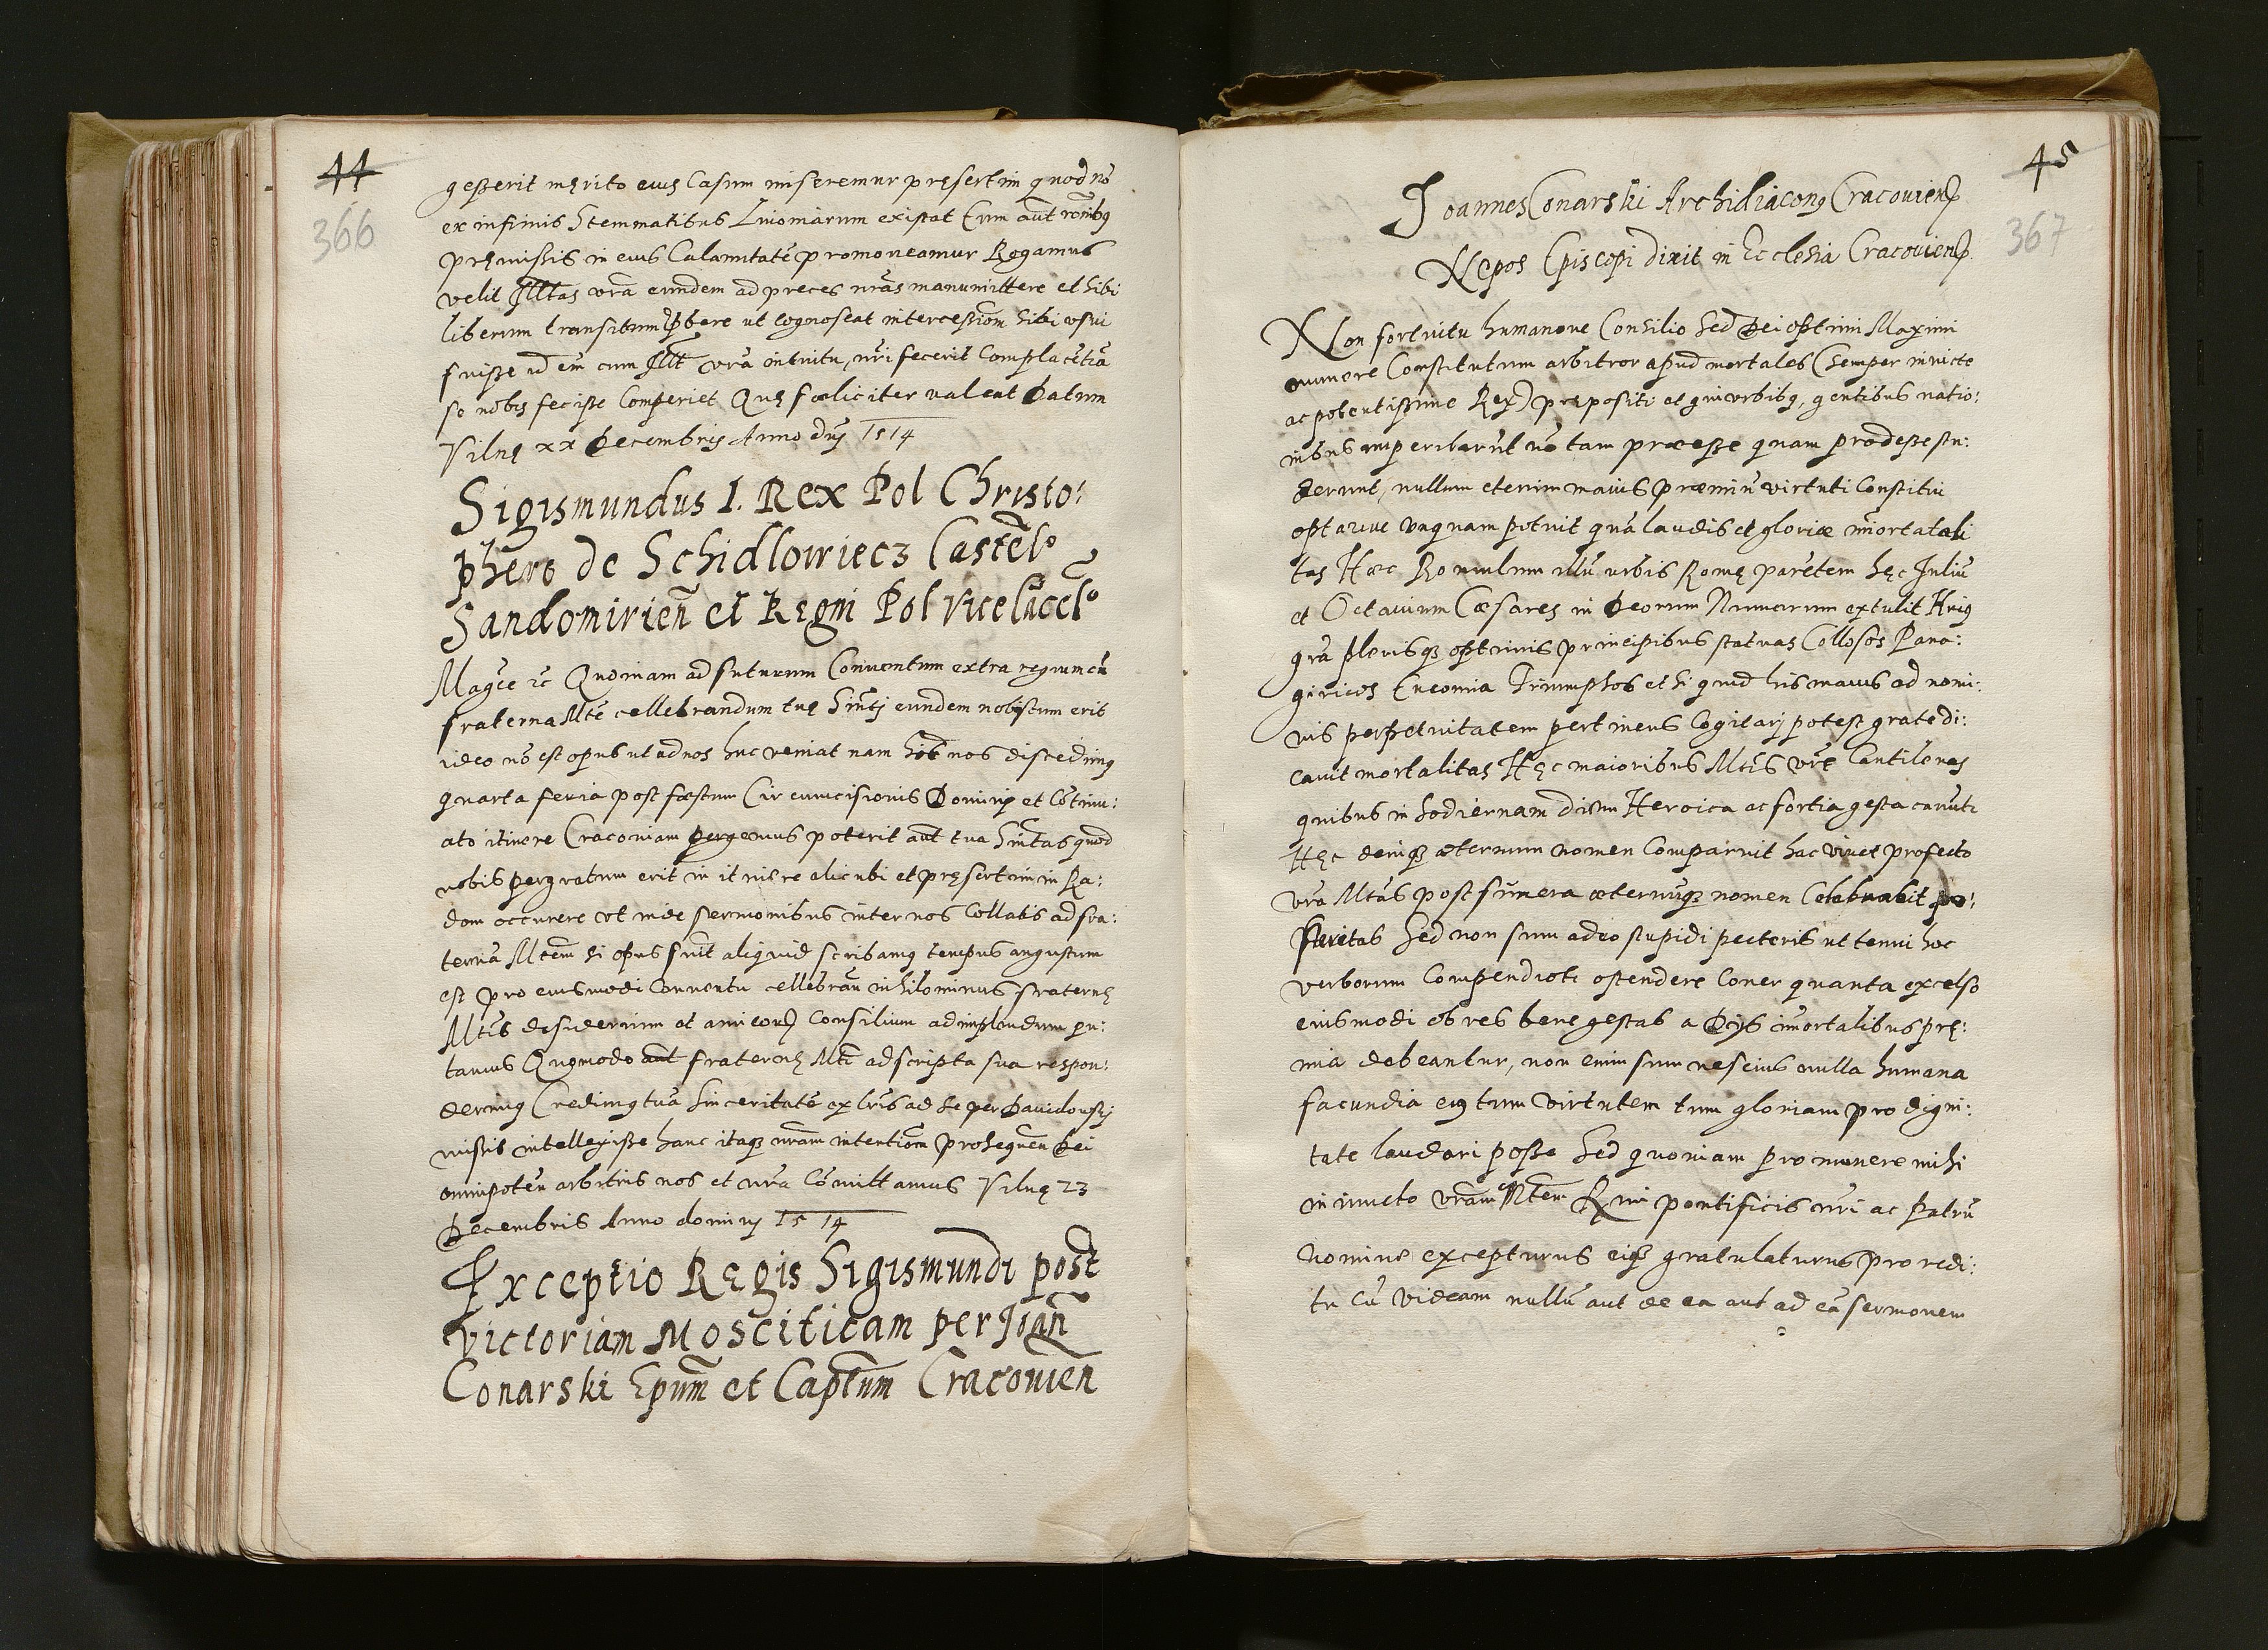 44
366
geßerit męrito eius Casum misereremur pręsertim quod nō
ex infimis Stemmatibus Liuoniarum existat Cum aūt rōnibꝫ
pręmissis in eius Calamitatē promoueamur Rogamus
velit Illtas vr̄a eundem ad preces nr̄as manumittere et sibi
liberum transitum p̄bere ut cognoscat intercessiōm sibi vsui
fuiße id em̄ cum Illt vr̄a intuitu nr̄i fecerit Complacētia
se nobis fecisse Comperiet Quę fœliciter ualeat Datum
Vilnę xx Decembris Anno dn̄j 1514
Sigismundus I. Rex Pol Christo:
phero de Schidlowiecz Castel°
Sandomirien̄ et Regni Pol Vicecācel°
Mag̃ce ꝛc̄ Quoniam ad futurum Conuentum extra regnum cū
fraterna Mt̄e cellebrandum tuę Sint̄j eundem nobiscum erit
ideo nō est opus ut ad nos huc veniat nam hīc nos discedimꝫ
quarta feria post fœstum Circumcisionis Dominj et Cōtinu:
ato itinere Cracouiam pergemus poterit aūt tua Sint̄as quod
nobis pergratum erit in itinere alicubi et pręsertim in Ra:
dom occurere vt inde sermonibus inter nos Collatis ad fra:
ternā Mt̄em si opus fuit aliquid scribamꝫ tempus angustum
est pro eiusmodi Conuentu cellebrān nihilominus fraternę
Mt̄is desiderium et amicorꝫ Consilium ad implendum pu:
tamus Quomodo aūt fraternę Mt̄i ad scripta sua respon:
derimꝫ Credimꝫ tuā Sinceritatē ex lr̄is ad se per Dauidouskj
missis intellexisse hanc itaqꝫ nr̄am intentiōm prosequen̄ Dei
omnipotēn arbitris nos et nr̄a Cōmittamus Vilnę 23
Decembris Anno dominj 1514
Exceptio Regis Sigismundi post
victoriam Mosciticam per Joan̄
Conarski Epum̄ et Captl̄um Cracouien̄
45
367
Joannes Conarski Archidiaconꝫ Cracouienꝭ
Nepos Episcopi dixit in Ecclesia Cracouienꝭ
Non fortuitu humanoue Consilio Sed Dei optimi Maximi
numere Constitutum arbitror apud mortales (Semper inuicte
ac potentissime Rex) prępositi et qui urbibꝫ, gentibus natio:
nibus imperitarūt nō tam præeße quam prodeße stu:
derunt, nullum etenim maius præmiū virtuti Constitui
optarue vnquam potuit quā laudis et gloriæ im̄ortatali
tas Hæc Romulum illū urbis Romę parētem hęc Juliū
et Octauium Cæsares in Deorum Numerum extulit Huiꝫ
gr̄a plerisqꝫ optimis principibus statuas Collosos Pane:
giricos Encomia Triumphos et si quid his maius ad nomi:
nis perpetuitatem pertinens Cogitarj potest grate di:
cauit mortalitas Hęc maioribus Mt̄is vr̄e Cantilenas
quibus in hodiernam diem Heroica ac fortia gesta canūt:
Hęc deniqꝫ æternum nomen Comparuit hac viuet profecto
vr̄a Mt̄as post funera æternūqꝫ nomen Celebrabit po:
steritas Sed non sum adeo stupidi pectoris ut tenui hoc
verborum Compendio te ostendere Coner quanta excelso
eiusmodi ob res bene gestas a Dijs im̄ortalibus prę:
mia debeantur, non enim sum nescius nulla humana
facundia eiꝫ tum virtutem tum gloriam pro digni:
tate laudari posse Sed quoniam pro munere mihi
iniuncto vr̄am Mt̄em Rmi pontificis nr̄i ac Patrū
nomine excepturus eiqꝫ gratulaturus pro redi:
tu cū videam nullū aut de ea aut ad eā sermonem